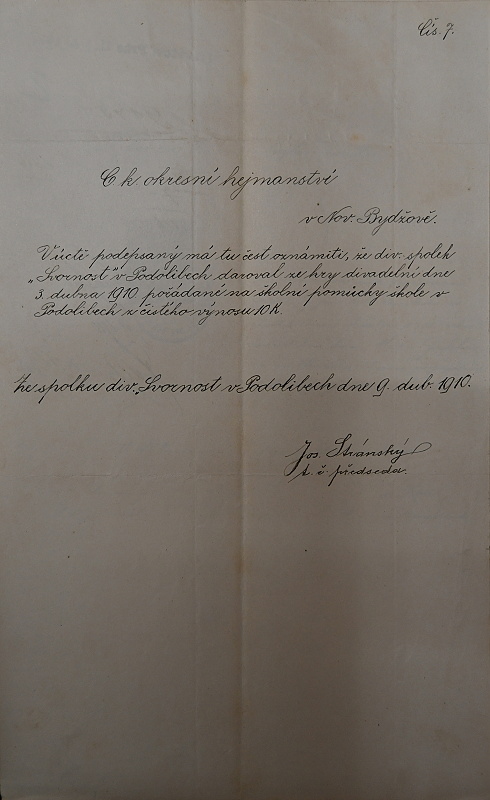 Čís. 7.
C. k. okresní hejmanství
v Nov. Bydžově.
V úctě podepsaný má tu čest oznámiti, že div. spolek
„Svornost" v Podolibech daroval ze hry divadelní dne
3. dubna 1910 pořádané na školní pomůcky škole v
Podolibech z čistého výnosu 10 K.
Ze spolku div. „Svornost v Podolibech dne 9. dub. 1910.
Jos. Stránský
t. č. předseda.